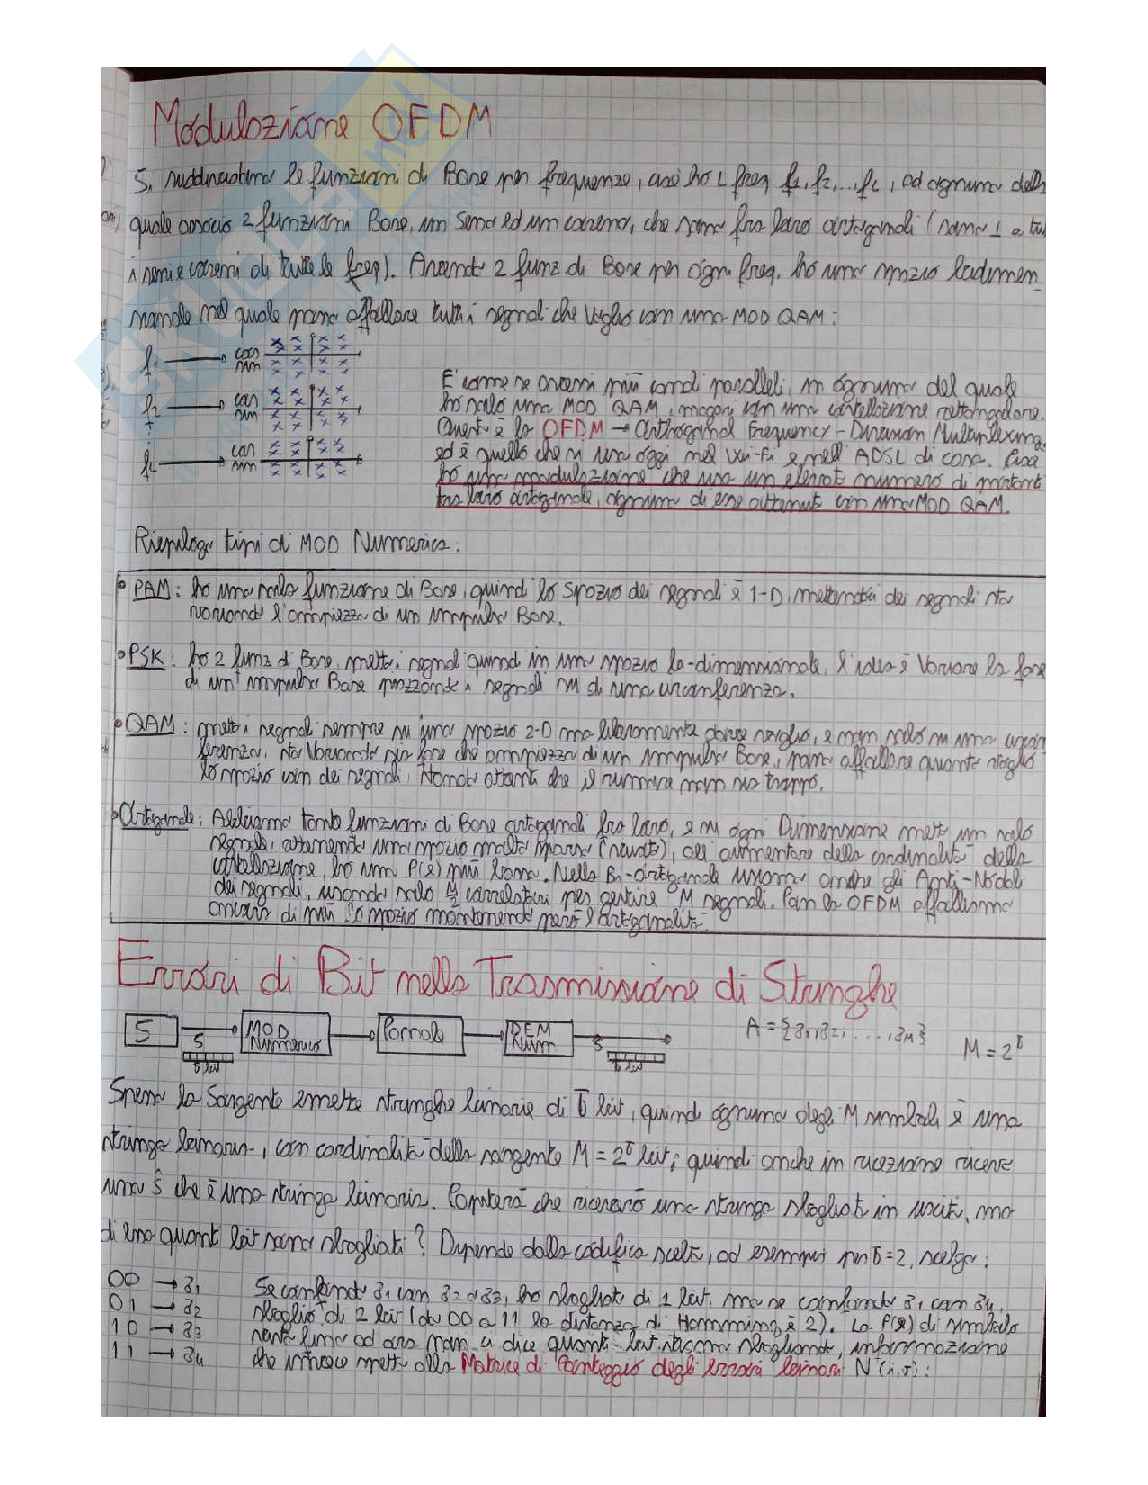 Modulazione OFDM
Si suddividono le funzioni di Base per frequenze, così ho L freq f1, f2, ..., fL, ad ognuna delle
quale associo 2 funzioni Base, un seno ed un coseno, che sono fra loro ortogonali (sono ⊥ a tutti
i seni e coseni di tutte le freq). Avendo 2 funz di Base per ogni freq. ho uno spazio bidimen_
sionale nel quale posso affollare tutti i segnali che voglio con una MOD QAM:
f1 → cos sin
f2 → cos sin
fL → cos sin
E' come se avessi più canali paralleli, in ognuno del quale
ho solo una MOD QAM, magari con una costellazione rettangolare.
Questa è la OFDM → Orthogonal Frequency-Division Multiplexing
ed è quello che si usa oggi nel Wi-fi e nell'ADSL di casa. Cioè
ho una modulazione che usa un elevato numero di portanti
tra loro ortogonali, ognuna di esse ottenuta con una MOD QAM.
Riepilogo tipi di MOD Numerica:
• PAM: ho una sola funzione di Base, quindi lo spazio dei segnali è 1-D, metto dei segnali sta
variando l'ampiezza di un impulso Base.
• PSK: ho 2 funz di Base, metto i segnali quindi in uno spazio bi-dimensionale, l'idea è Variare la fase
di un impulso Base piazzando i segnali su di una circonferenza.
• QAM: metto i segnali sempre su uno spazio 2-D ma liberamente dove voglio, e non solo su una circon
ferenza, sto Variando sia fase che ampiezza di un impulso Base, posso affollare quanto voglio
lo spazio con dei segnali, stando attenti che il rumore non sia troppo.
• Ortogonale: Abbiamo tante funzioni di Base ortogonali fra loro, e su ogni Dimensione metto un solo
segnale, ottenendo uno spazio molto sparso (vuoto), all'aumentare della cardinalità della
costellazione, ho una P(E) più buona. Nella Bi-Ortogonale usiamo anche gli Anti-Nodali
dei segnali, usando solo M/2 correlatori per gestire M segnali. Con la OFDM affolliamo
ancora di più lo spazio mantenendo però l'ortogonalità.
Errori di Bit nella Trasmissione di Stringhe
S → MOD Numerico → Canale → DEM Num →
S
ŝ
A = {s1, s2, ..., sM}
M = 2^b
Spesso la Sorgente emette stringhe binarie di b bit, quindi ognuno degli M simboli è una
stringa binaria, con cardinalità della sorgente M = 2^b bit; quindi anche in ricezione ricevo
una ŝ che è una stringa binaria. Capiterà che riceverò una stringa sbagliata in uscita, ma
di essa quanti bit sono sbagliati? Dipende dalla codifica scelta, ad esempio per b=2, scelgo:
00 → s1
01 → s2
10 → s3
11 → s4
Se confondo s1 con s2 o s3, ho sbagliato di 1 bit. ma se confondo s1 con s4,
sbaglio di 2 bit (da 00 a 11 la distanza di Hamming è 2). La P(E) di simbolo
vista fino ad ora non ci dice quanti bit stiamo sbagliando, informazione
che invece mette alla Matrice di Conteggio degli Errori binari N(i,j):